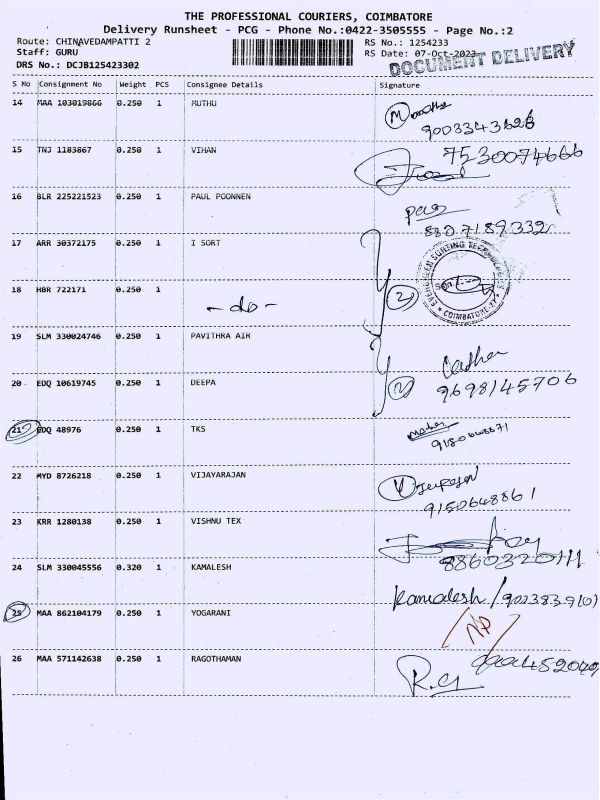 THE PROFESSIONAL COURIERS, COIMBATORE
Delivery Runsheet - PCG - Phone No.:0422-3505555 - Page No.:2
Route: CHINAVEDAMPATTI 2 RS No.: 1254233
Staff: GURU RS Date: 07-Oct-2023
DOCUMENT DELIVERY
DRS No.: DCJB125423302
S No Consignment No Weight PCS Consignee Details Signature
14 MAA 103019866 0.250 1 MUTHU
9003343628
15 TNJ 1183867 0.250 1 VIHAN 7530074666
16 BLR 225221523 0.250 1 PAUL POONNEN
8807189332
17 ARR 30372175 0.250 1 I SORT
EVERGREEN SORTING COIMBATORE
18 HBR 722171 0.250 1 2
- do -
19 SLM 330024746 0.250 1 PAVITHRA AIR
20 EDQ 10619745 0.250 1 DEEPA 2 9698145706
21 EDQ 48976 0.250 1 TKS
22 MYD 8726218 0.250 1 VIJAYARAJAN
9150648861
23 KRR 1280138 0.250 1 VISHNU TEX
24 SLM 330045556 0.320 1 KAMALESH 8860320111
Kamalesh /
25 MAA 862104179 0.250 1 YOGARANI
NP
26 MAA 571142638 0.250 1 RAGOTHAMAN
R.G